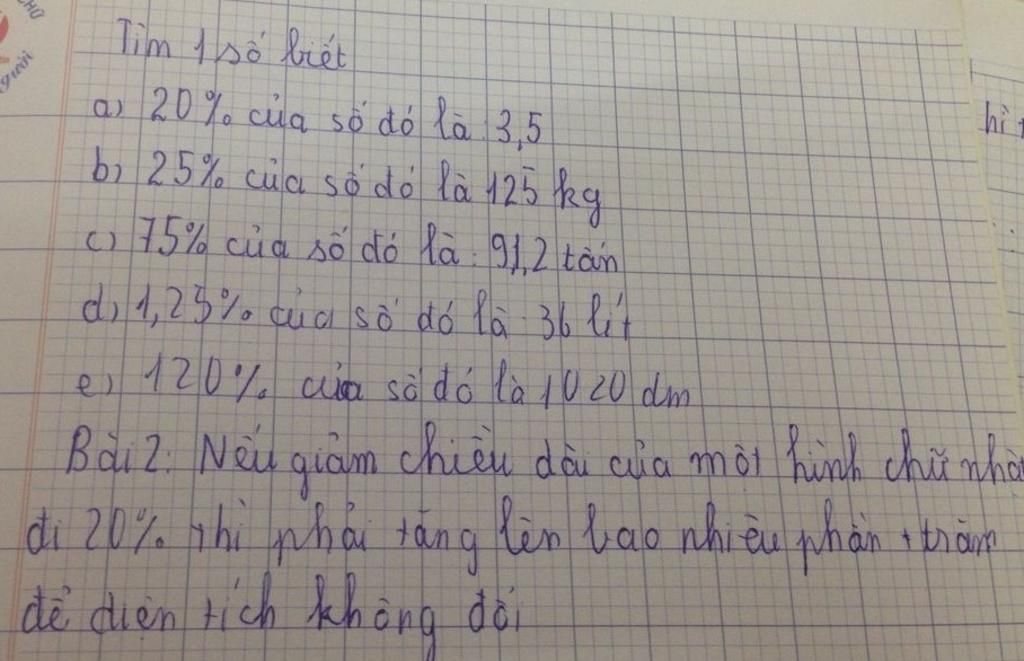 CHỮ
người
Tìm 1 số biết
a) 20% của số đó là 3,5
hì
b) 25% của số đó là 125 kg
c) 75% của số đó là : 91,2 tấn
d) 1,25% của số đó là 36 lít
e) 120% của số đó là 1020 dm
Bài 2: Nếu giảm chiều dài của một hình chữ nhậ
đi 20% thì phải tăng lên bao nhiêu phần trăm
để diện tích không đổi